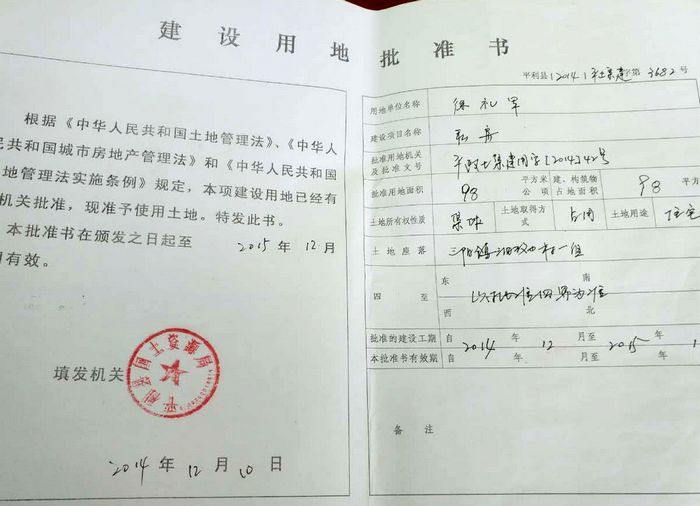 建设用地批准书
根据《中华人民共和国土地管理法》、《中华人
民共和国城市房地产管理法》和《中华人民共和国
地管理法实施条例》规定，本项建设用地已经有
机关批准，现准予使用土地。特发此书。
本批准书在颁发之日起至 2015 年 12 月
有效。
填发机关
平利县国土资源局
2014 年 12 月 10 日
平利县[2014]平土集建字第3682号
用地单位名称 徐礼军
建设项目名称
批准用地机关及批准文号 平政土集建用字[2014]42号
批准用地面积 98 平方米 公顷 建、构筑物占地面积 98 平方
土地所有权性质 集体 土地取得方式 占用 土地用途 住宅
土地座落 三阳镇 村一组
四至 东 南 西 北 四界为准
批准的建设工期 自 2014 年 12 月至 2015 年 1
本批准书有效期 自 年 月至 年
备注